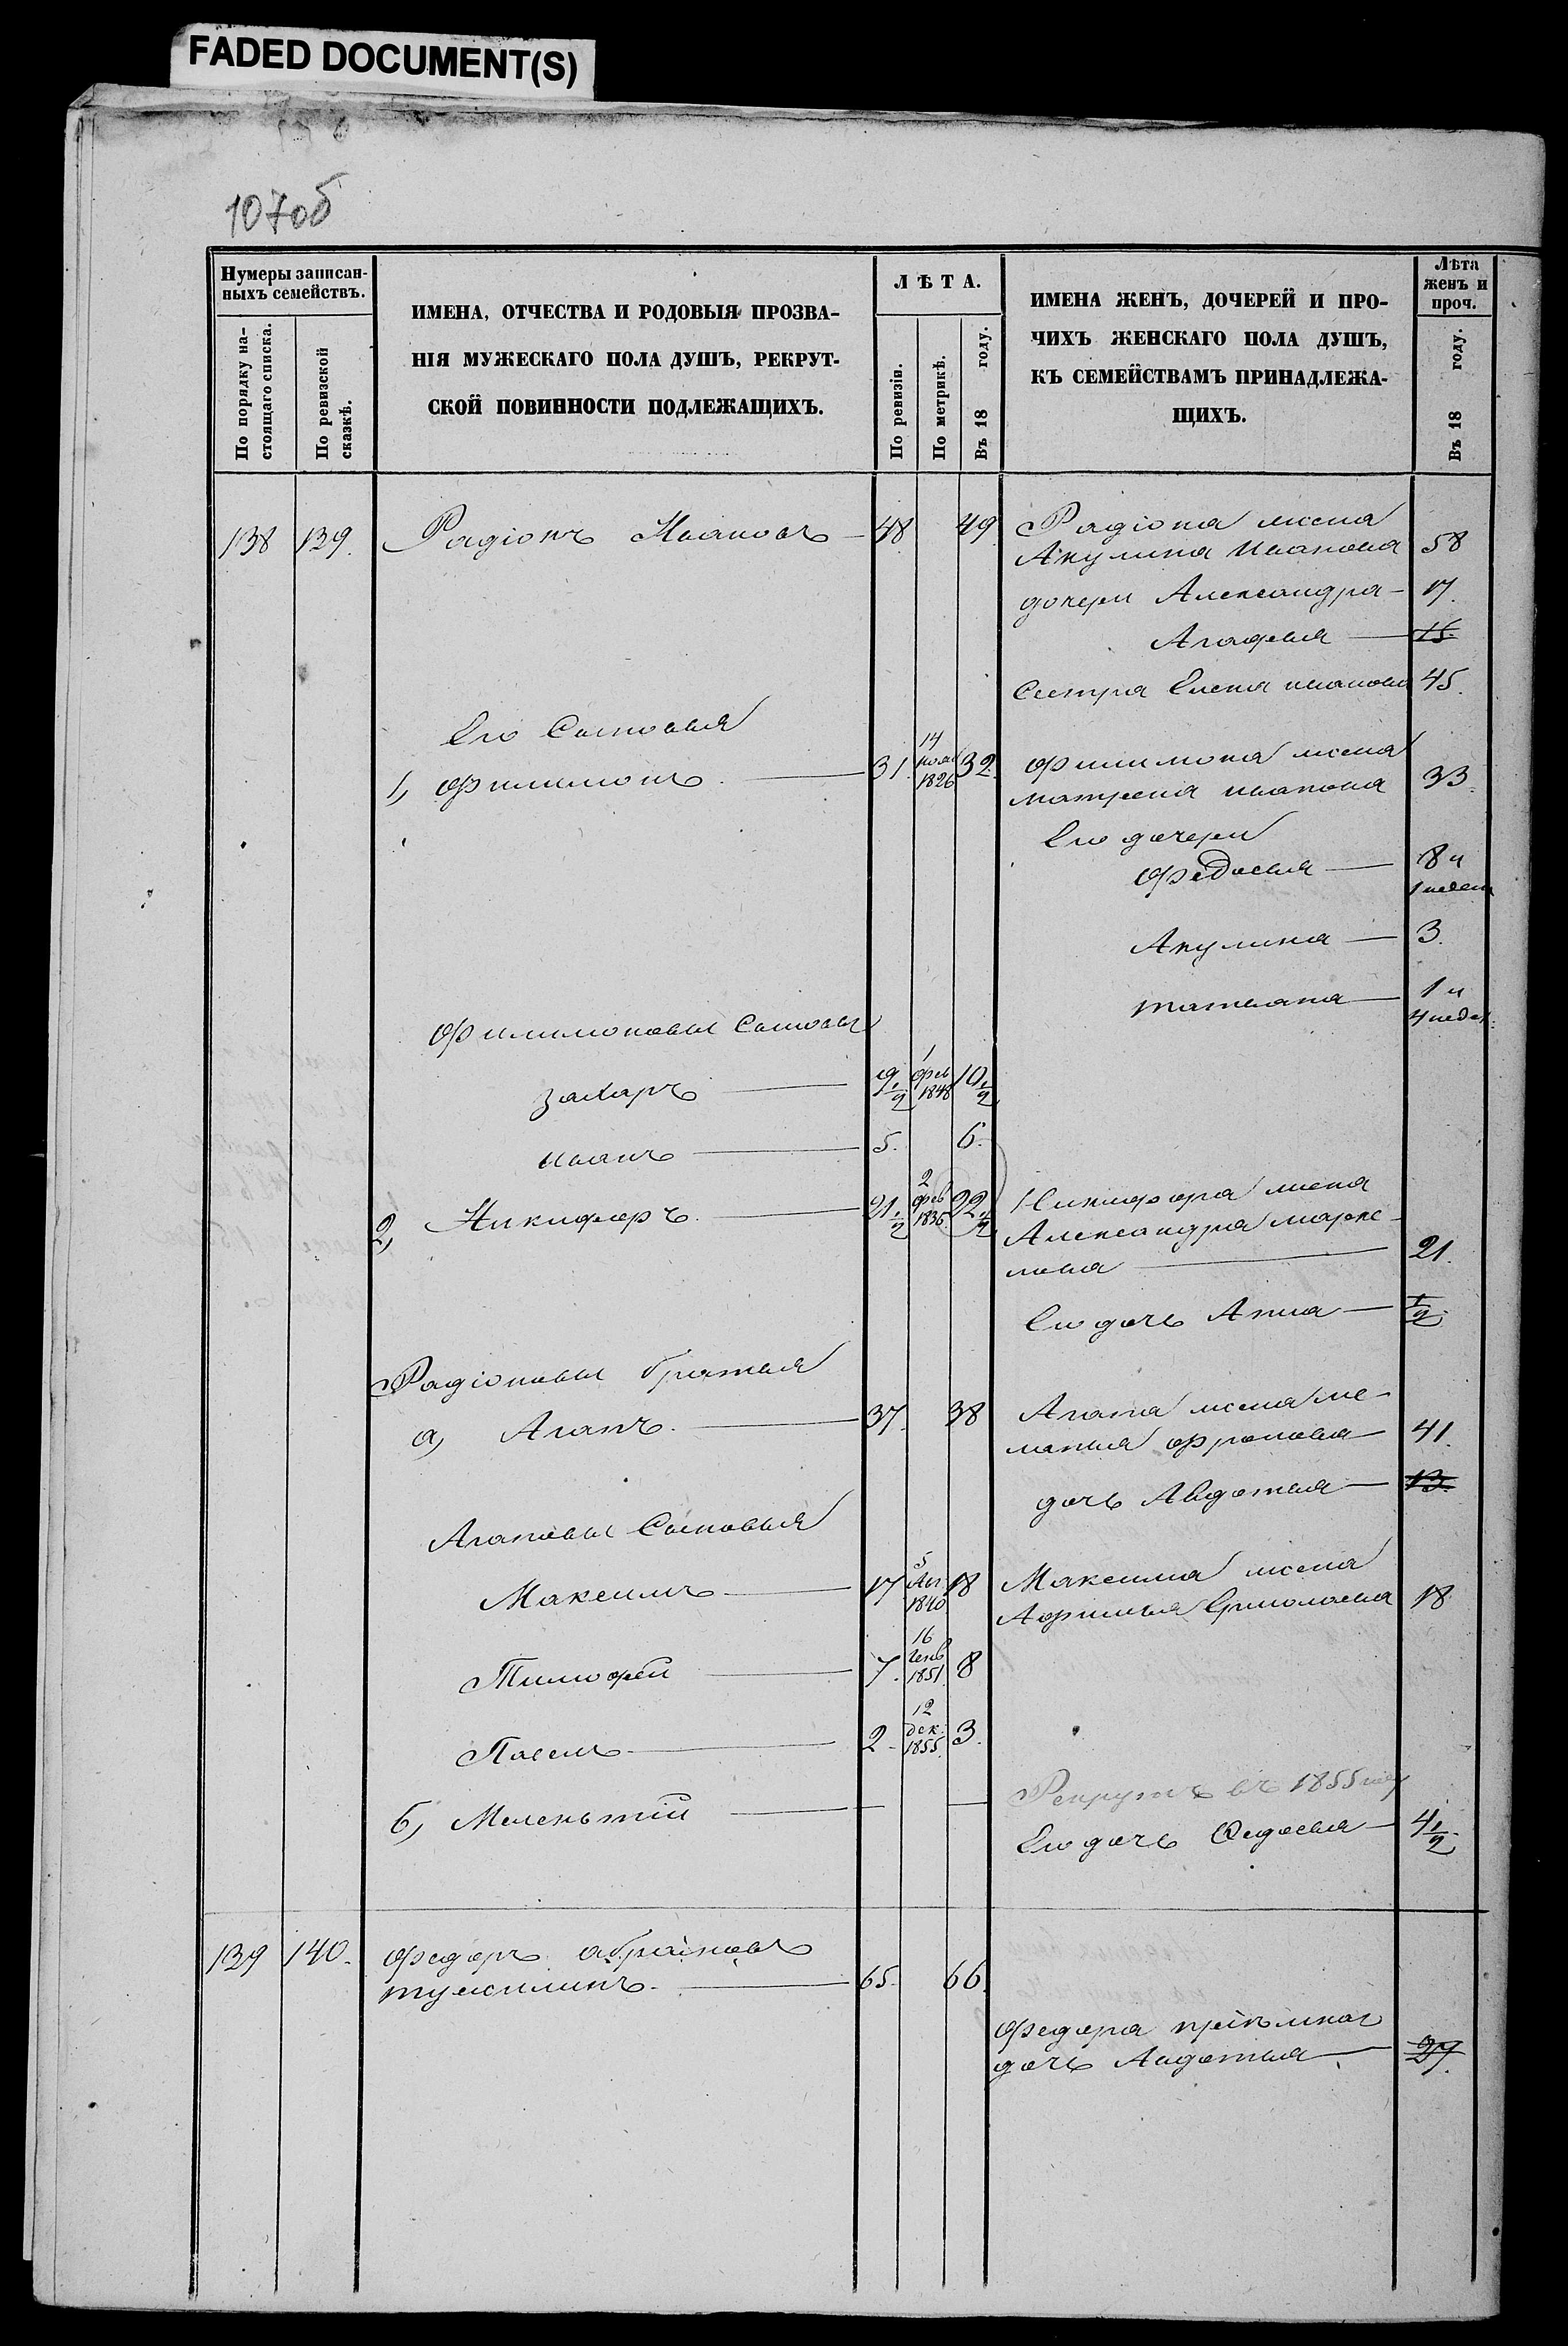 FADED DOCUMENT(S)
107об
Нумеры записан-
ныхъ семействъ.
По порядку на-
стоящаго списка.
По ревизской
сказкѣ.
ИМЕНА, ОТЧЕСТВА И РОДОВЫЯ ПРОЗВА-
НІЯ МУЖЕСКАГО ПОЛА ДУШЪ, РЕКРУТ-
СКОЙ ПОВИННОСТИ ПОДЛЕЖАЩИХЪ.
ЛѢТА.
По ревизіи.
По метрикѣ.
Въ 18 году.
ИМЕНА ЖЕНЪ, ДОЧЕРЕЙ И ПРО-
ЧИХЪ ЖЕНСКАГО ПОЛА ДУШЪ,
КЪ СЕМЕЙСТВАМЪ ПРИНАДЛЕЖА-
ЩИХЪ.
Лѣта
женъ и
проч.
Въ 18 году.
138 139. Радіонъ Ивановъ — 48 49 Радіона жена
Акулина Иванова 58
дочери Александра — 17.
Агафья — 15.
Сестра Елена иванова 45.
Его Сыновья
1, Филимонъ. — 31. 14 нояб 1826 32. Филимона жена
матрена иванова 33.
Его дочери
Федосья — 8 и
1 недели
Акулина — 3.
татьяна — 1 и
4 недел:
Филимоновы Сыновья
Захаръ — 9 1/2 1 фев 1848 10 1/2
иванъ — 5. 6.
2, Никифоръ. — 21 1/2 2 фев 1836 22 1/2 Никифора жена
Александра марке-
лова — 21.
Его дочь Анна — 1/2.
Радіоновы братья
а, Агапъ. — 37. 38 Агапа жена ме-
ланья фролова — 41.
дочь Авдотья — 13.
Агаповы Сыновья
Максимъ — 17 5 Ав. 1840 18 Максима жена
Афимья Ермолаева 18
Тимофей — 7. 16 Генв 1851. 8
Павелъ — 2. 12 дек. 1855. 3.
б, Мелентій — — Рекрутъ въ 1855 году
Его дочь Федосья — 4 1/2.
139 140. Федоръ абрамовъ
тужилинъ. — 65. 66.
Федора пріемная
дочь Авдотья — 27.